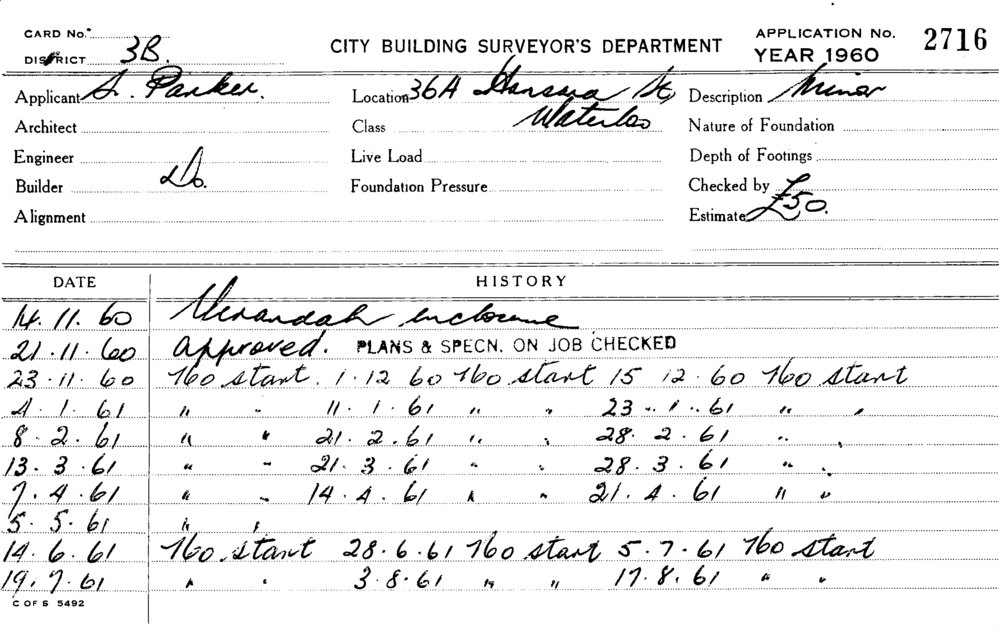 CARD No.
DISTRICT 3B.
CITY BUILDING SURVEYOR'S DEPARTMENT
APPLICATION No. 2716
YEAR 1960
Applicant S. Parker. Location 36A Hansard St, Description Minor
Architect Class Waterloo Nature of Foundation
Engineer Live Load Depth of Footings
Builder Do. Foundation Pressure Checked by
Alignment Estimate £50.
DATE HISTORY
14.11.60 Verandah enclosure
21.11.60 approved. PLANS & SPECN. ON JOB CHECKED
23.11.60 No start. 1.12 60 No start 15 12.60 No start
4.1.61 " " 11.1.61 " " 23.1.61 " "
8.2.61 " " 21.2.61 " " 28.2.61 " "
13.3.61 " " 21.3.61 " " 28.3.61 " "
7.4.61 " " 14.4.61 " " 21.4.61 " "
5.5.61 " "
14.6.61 No start 28.6.61 No start 5.7.61 No start
19.7.61 " " 3.8.61 " " 17.8.61 " "
C OF S 5492